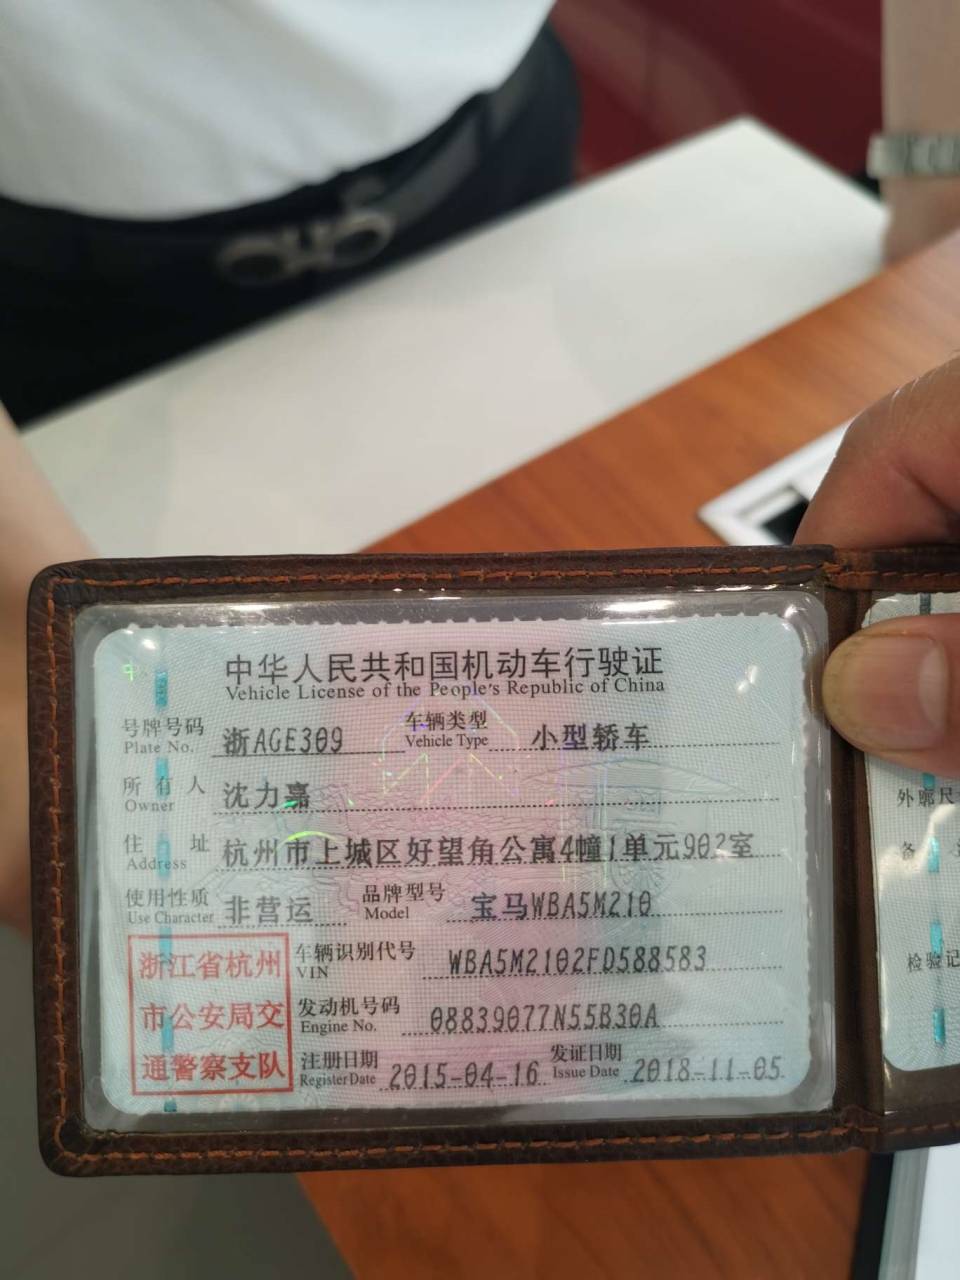 中华人民共和国机动车行驶证
Vehicle License of the People's Republic of China
号牌号码 浙AGE309 车辆类型 小型轿车
Plate No. Vehicle Type
所有人 沈力嘉
Owner
住址 杭州市上城区好望角公寓4幢1单元902室
Address
使用性质 非营运 品牌型号 宝马WBA5M210
Use Character Model
浙江省杭州
市公安局交
通警察支队
车辆识别代号 WBA5M2102FD588583
VIN
发动机号码 08839077N55B30A
Engine No.
注册日期 2015-04-16 发证日期 2018-11-05
Register Date Issue Date
外廓尺
备
检验记